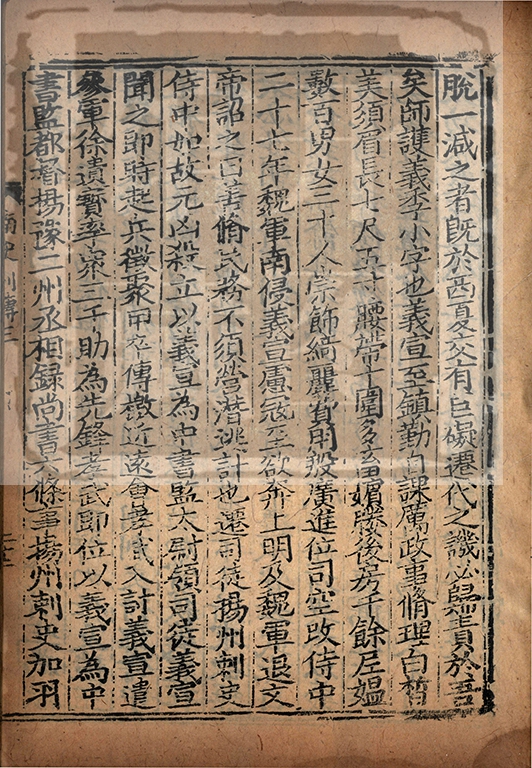 脫一減之者既於西夏交有巨礙遷代之譏必歸責於吾
矣師護義季小字也義宣至鎮勤自課厲政事脩理白晳
美須眉長七尺五寸腰帶十圍多畜嬪媵後房千餘尼媼
數百男女三十人崇飾綺麗費用殷廣進位司空改侍中
二十七年魏軍南侵義宣慮寇至欲奔上明及魏軍退文
帝詔之曰善脩民務不須營潛逃計也遷司徒揚州刺史
侍中如故元凶殺立以義宣為中書監太尉領司徒義宣
聞之即時起兵徵聚甲卒傳檄近遠會孝武入討義宣遣
參軍徐遺寶率衆三千助為先鋒孝武即位以義宣為中
書監都督揚豫二州丞相録尚書六條事揚州刺史加羽
南史列傳三